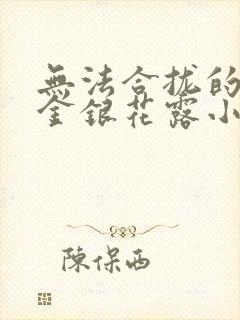 無法合拢的
金銀花露小
陳保西